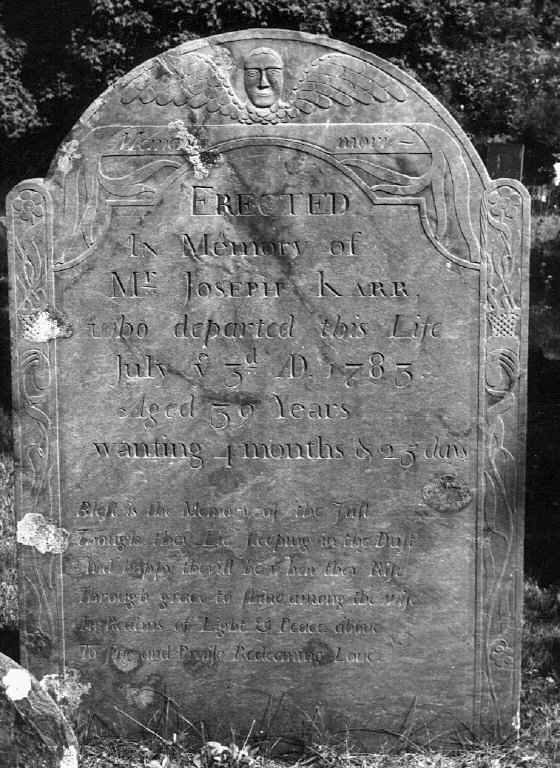 Memento mori
ERECTED
In Memory of
Mr. JOSEPH KARR,
who departed this Life
July ye 3d AD. 1783.
Aged 39 Years
wanting 4 months & 25 days
Blest is the Memory of the Just
Though they Lie sleeping in the Dust
And happy they'll be when they Rise
Through grace to shine among the wise
In Realms of Light & Peace above
To Sing and Praise Redeeming Love.